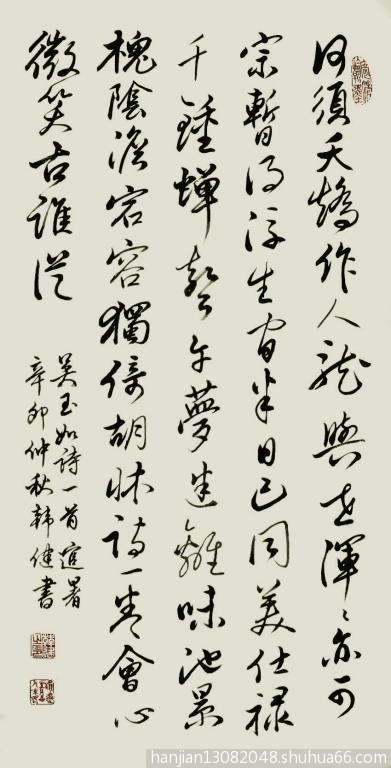 何須夭矯作人龍與世渾〻亦可
宗暫得浮生閒半日已同美仕祿
千鍾蟬聲午夢迷離味池景
槐陰澹宕容獨倚胡牀詩一卷會心
微笑古誰從
吳玉如詩一首逭暑
辛卯仲秋韓健書
hanjian13082048.shuhua66.com